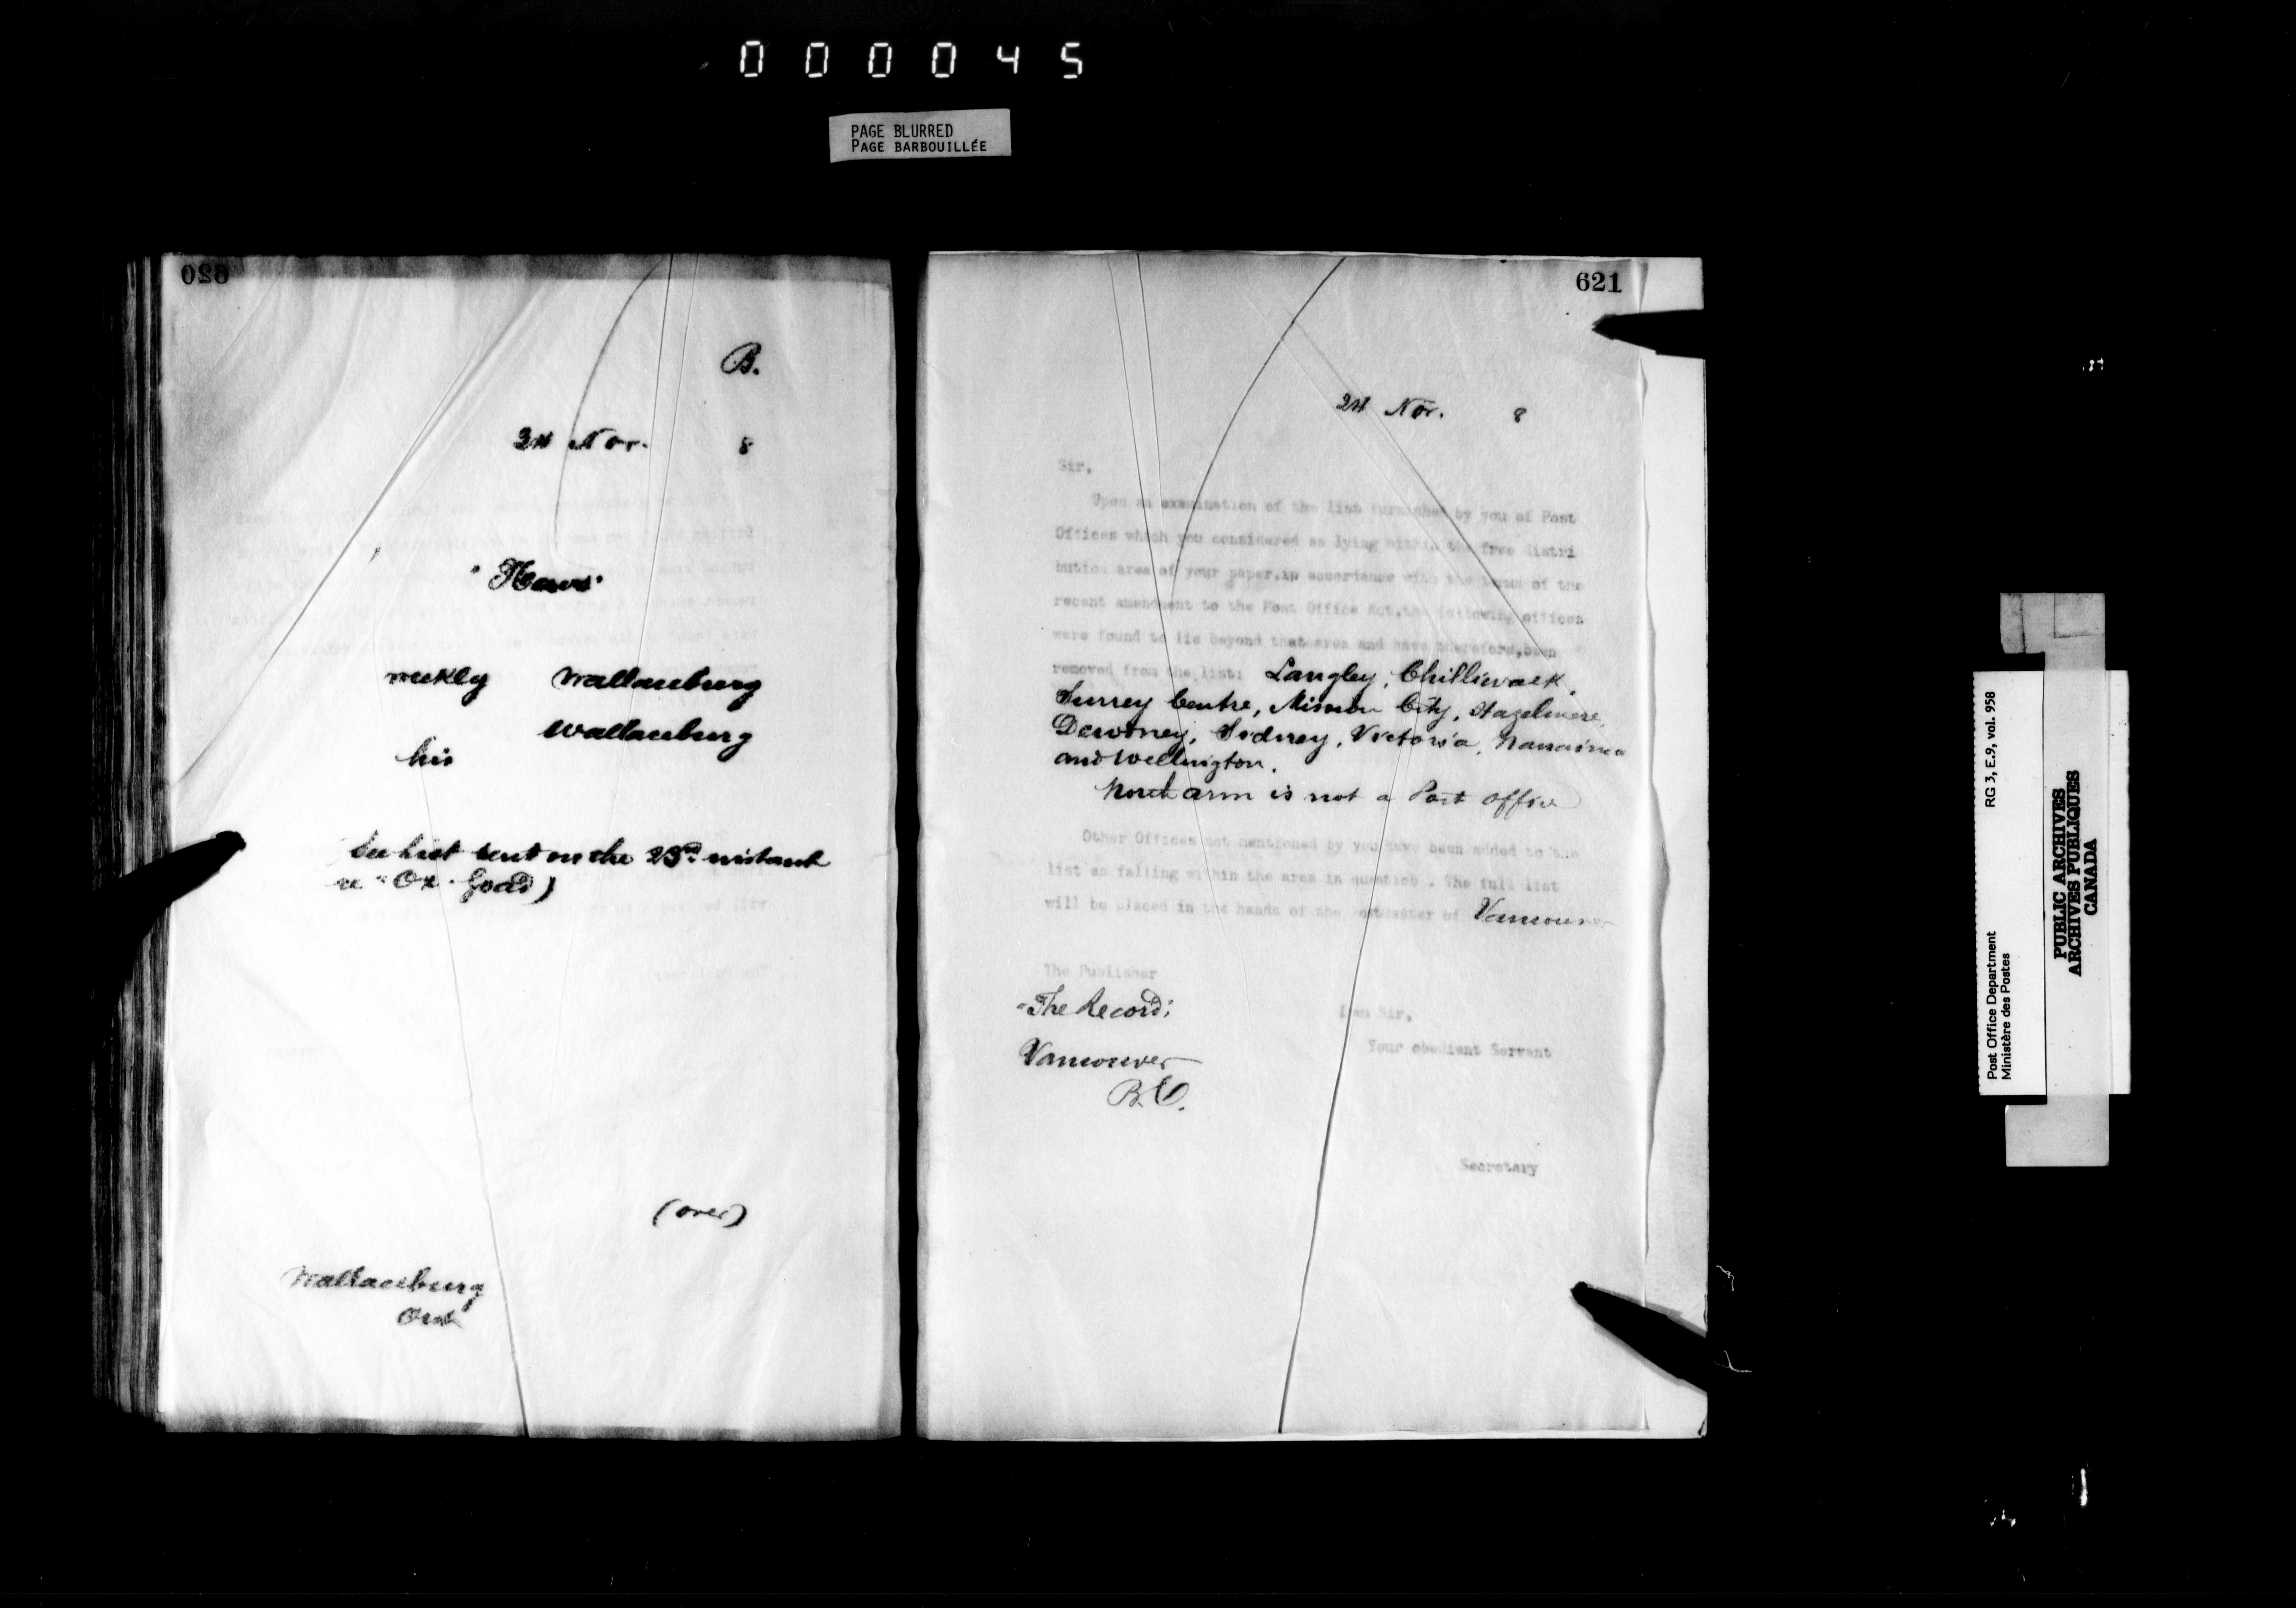 000045
PAGE BLURRED
PAGE BARBOUILLÉE
620
B.
24 Nov. 8
"News"
weekly Wallaceburg
Wallaceburg
his
See list sent on the 23rd instant
re "Ox-Goad")
(over)
Wallaceburg
Ont
621
24 Nov. 8
Sir,
Upon an examination of the list furnished by you of Post
Offices which you considered as lying within the free distri
bution area of your paper, in accordance with the terms of the
recent amendment to the Post Office Act, the following offices
were found to lie beyond that area and have therefore, been
removed from the list: Langley, Chilliwack,
Surrey Centre, Mission City, Hazelmere,
Dewdney, Sidney, Victoria, Nanaimo
and Wellington.
North arm is not a Post Office
Other Offices not mentioned by you have been added to the
list as falling within the area in question. The full list
will be placed in the hands of the Postmaster of Vancouver
The Publisher
"The Record;
Vancouver
B.C.
I am Sir,
Your obedient Servant
Secretary
RG 3, E.9, vol. 958
Post Office Department
Ministère des Postes
PUBLIC ARCHIVES
ARCHIVES PUBLIQUES
CANADA